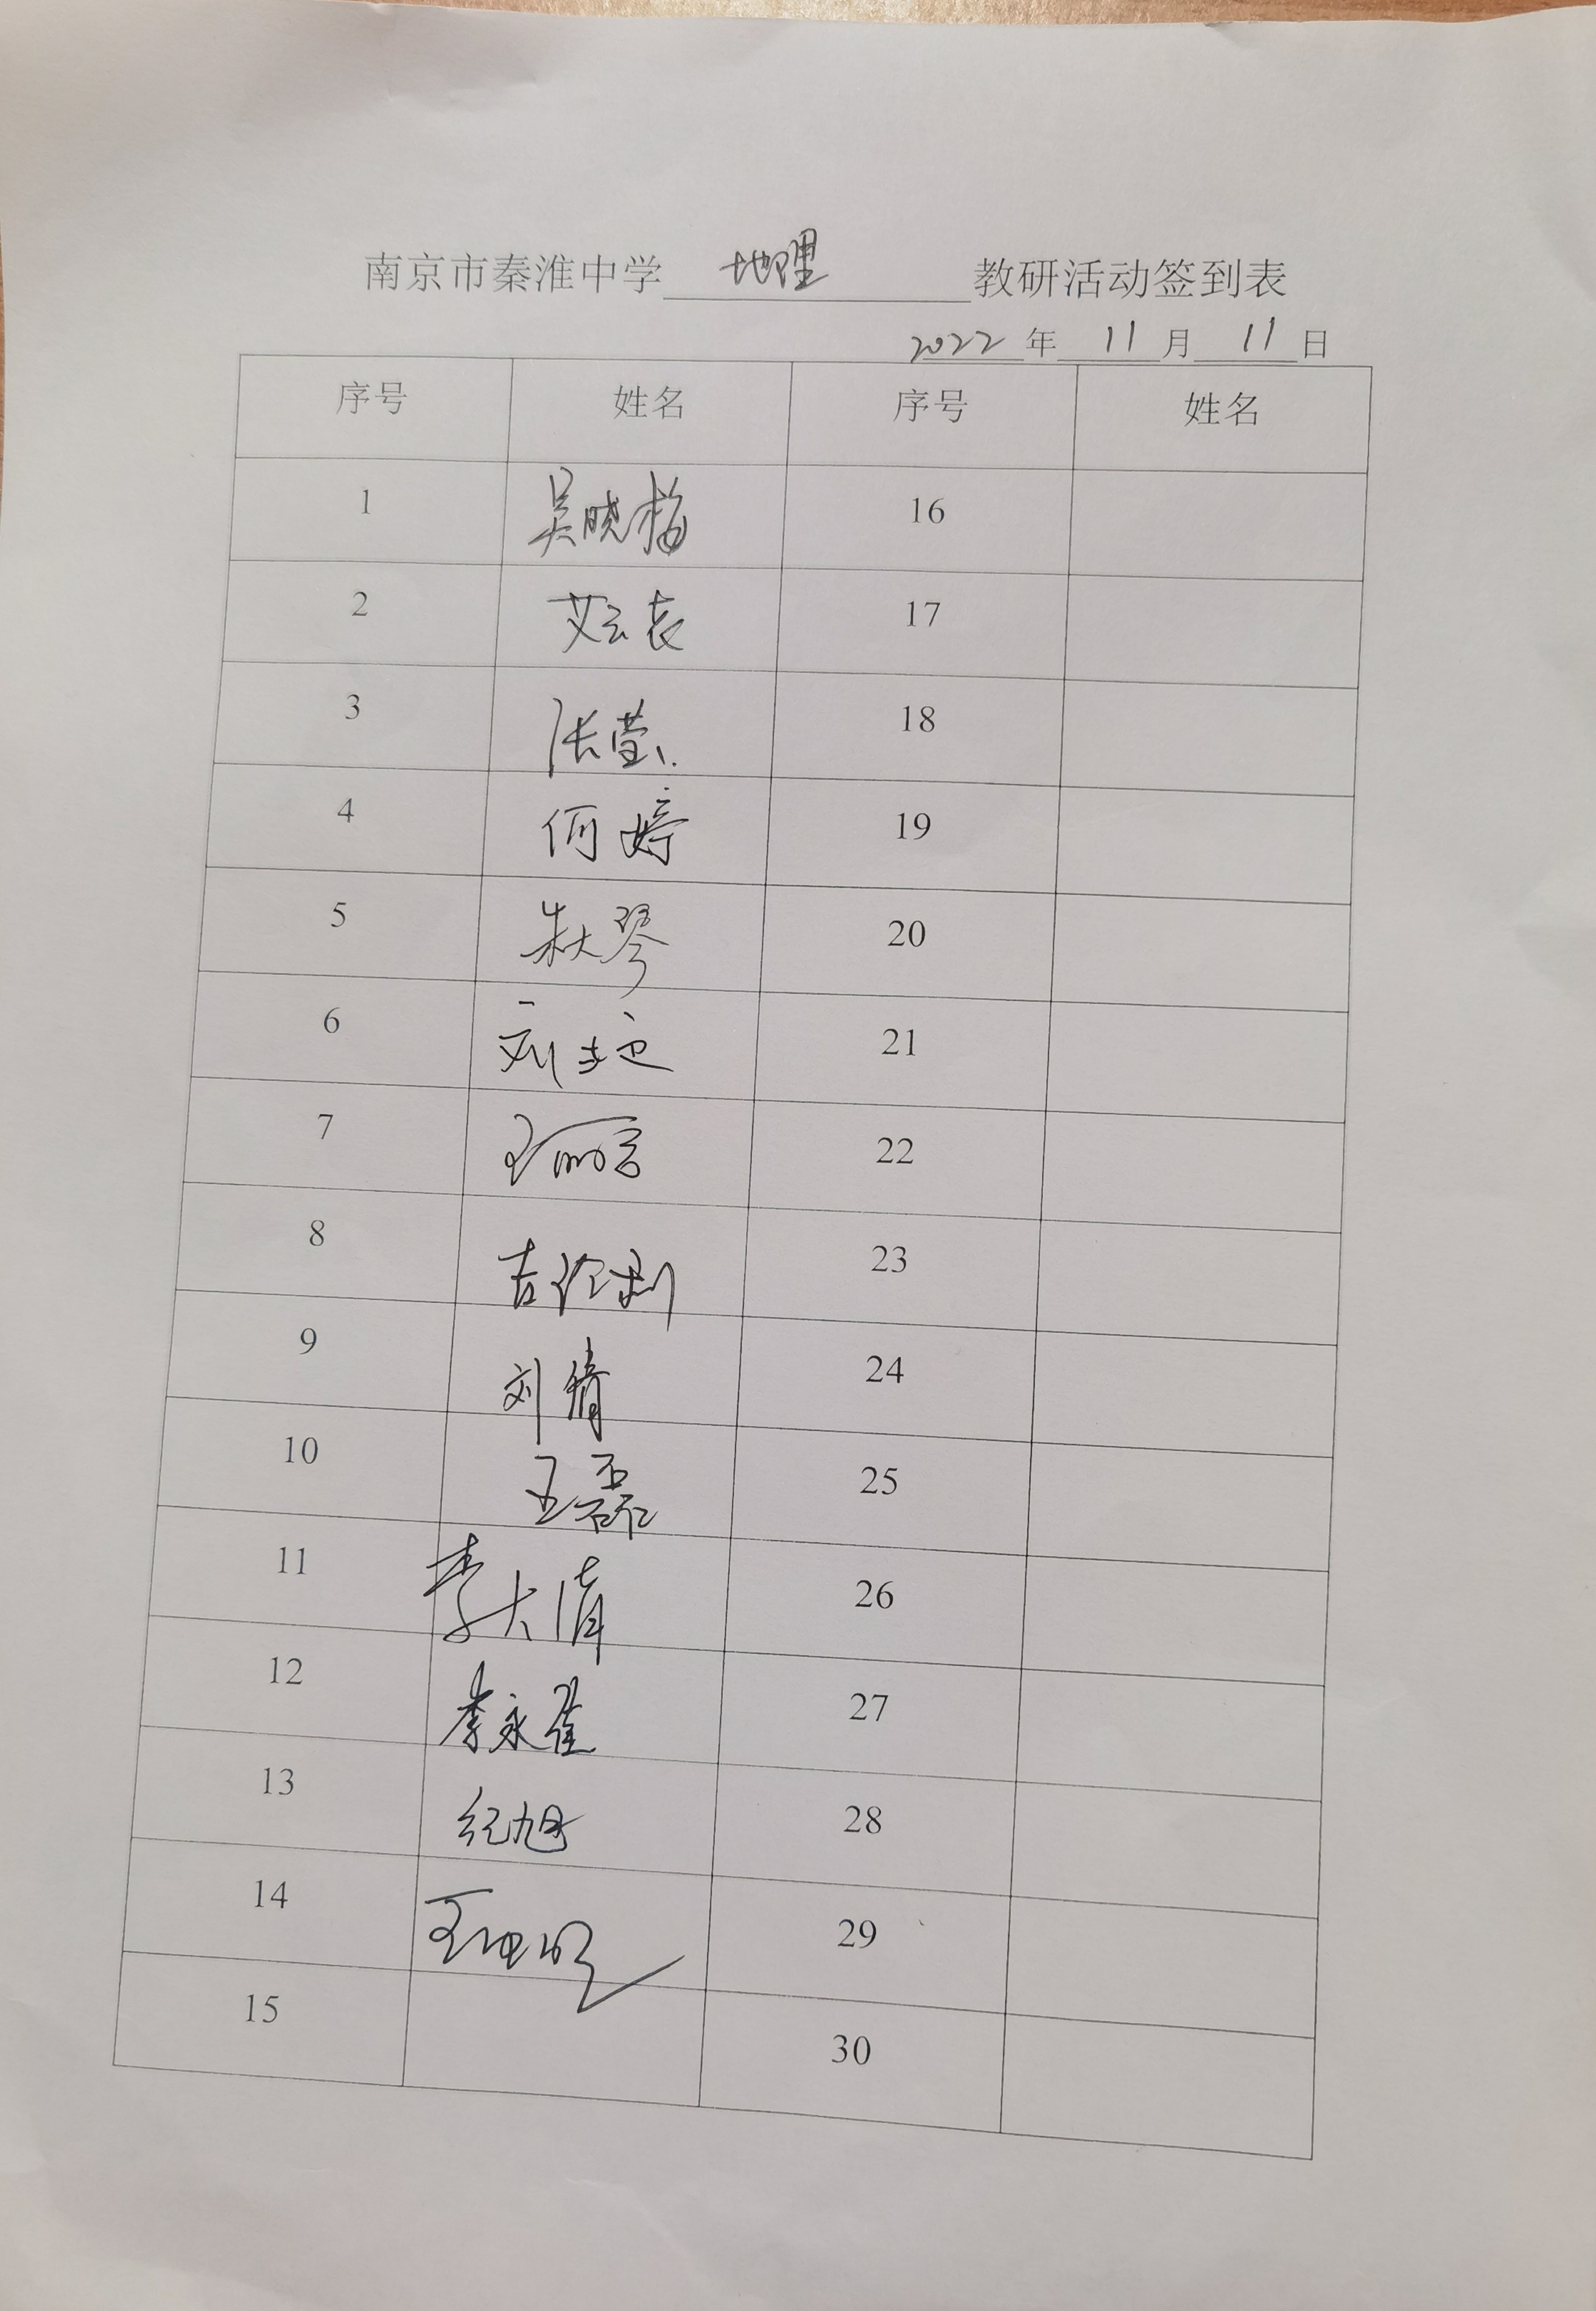 南京市秦淮中学 地理 教研活动签到表
2022 年 11 月 11 日
序号 姓名 序号 姓名
1 吴晓梅 16
2 艾云表 17
3 张莹 18
4 何婷 19
5 朱大琴 20
6 刘 21
7 王丽 22
8 吉 23
9 刘倩 24
10 王磊 25
11 李大清 26
12 李永 27
13 纪旭 28
14 王 29
15 30